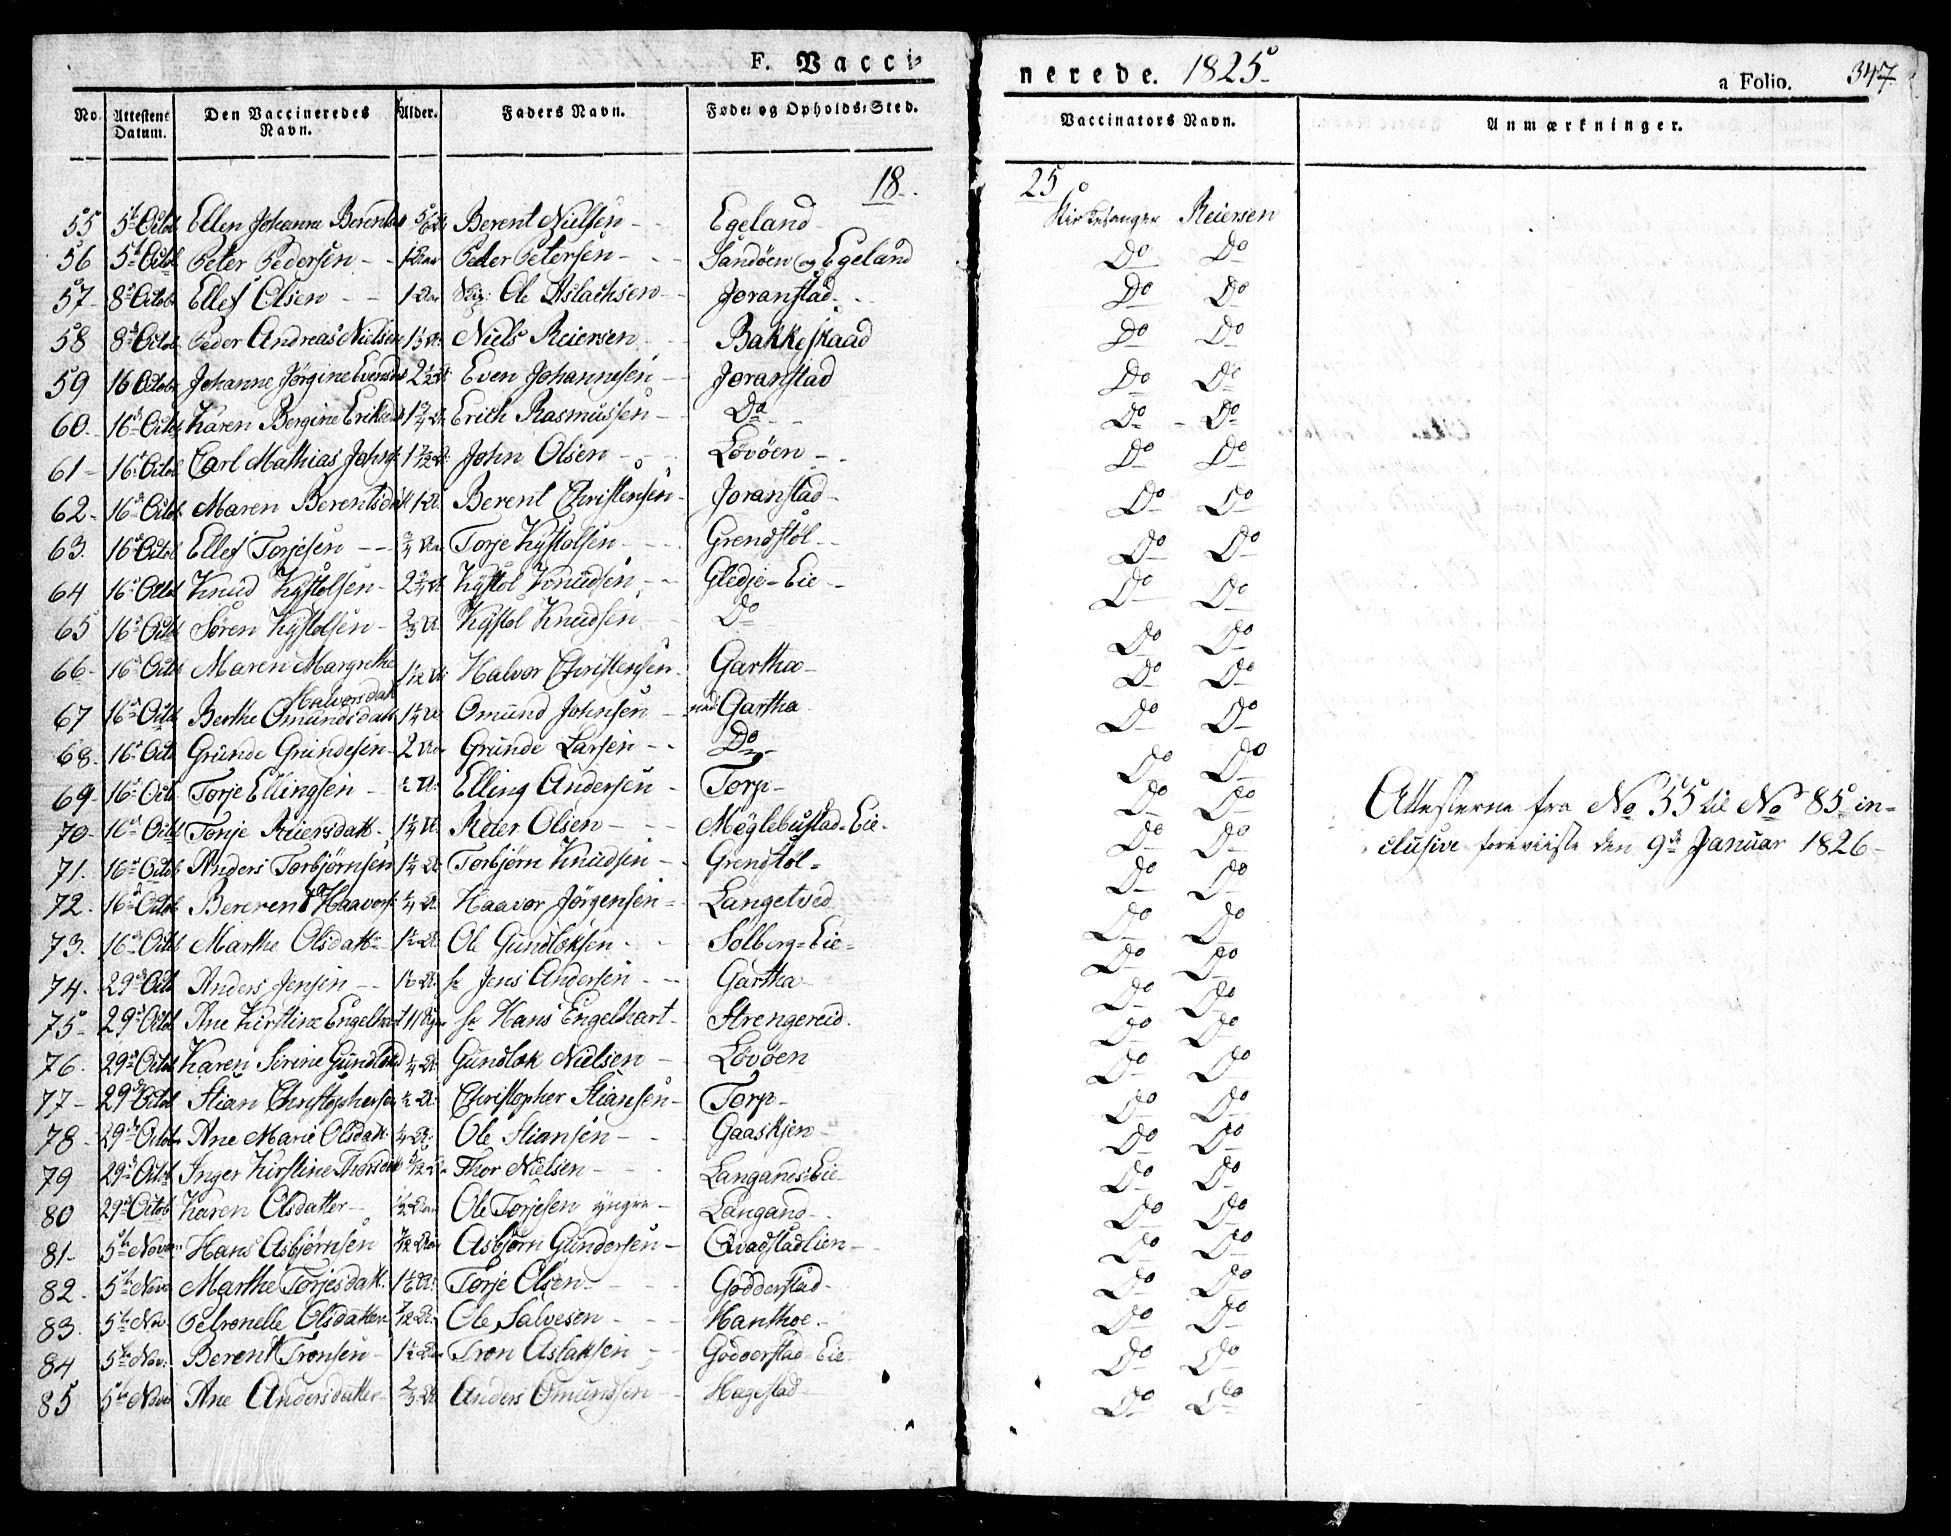 F. Vacci=
nerede. 1825.
a Folio. 347
No. Attestens Datum. Den Vaccineredes Navn. Alder. Faders Navn. Føde= og Opholds=Sted. Vaccinators Navn. Anmærkninger.
18 25
55 5t Octob Ellen Johanne Berentsd Berent Nielsen Egeland Kirkesanger Reiersen
56 5t Octob Peter Pedersen 1 Aar Peder Petersen Sandøen og Egeland Do Do
57 8d Octob Ellef Olsen 1 Aar Ole Aslachsen Joranstad Do Do
58 8d Octob Peder Andreas Nielsen Niels Reiersen Bakkeskaad Do Do
59 16 Octob Johanne Jørgine Evensd 2½ A Even Johannesen Joranstad Do Do
60 16d Octob Karen Bergine Eriksd Erich Rasmussen Do Do Do
61 16d Octob Carl Mathias Johns John Olsen Løvøen Do Do
62 16d Octob Maren Berentsdat 1 A Berent Christensen Joranstad Do Do
63 16d Octob Ellef Torjesen Torje Kystolsen Grendstøl Do Do
64 16d Octob Knud Kystolsen Kystol Knudsen Gledje-Eie Do Do
65 16d Octob Søren Kystolsen ⅔ A Kystol Knudsen Do Do Do
66 16d Octob Maren Margrethe Halvorsdatt Halvor Christensen Gartha Do Do
67 16d Octob Berthe Omundsdatt 1¼ A Omund Johnsen Gartha Do Do
68 16d Octob Grunde Grundesen 2 Aar Grunde Larsen Do Do Do
69 16d Octob Torje Ellingsen ½ A Elling Andersen Torp Do Do
70 16d Octob Tonje Reiersdatt 1¼ A Reier Olsen Møglebustad-Eie Do Do
71 16d Octob Anders Torbjørnsen 1¼ A Torbjørn Knudsen Grendstøl Do Do
72 16d Octob Berent Haavors ¼ A Haavor Jørgensen Langetved Do Do
73 16d Octob Marthe Olsdatt Ole Gundlaksen Solberg-Eie Do Do
74 29d Octob Anders Jensen Jens Andersen Gartha Do Do
75 29d Octob Ane Kirstine Engelhart Hans Engelhart Strengereid Do Do
76 29d Octob Karen Serine Gundlaksd ¼ A Gundlak Nielsen Løvøen Do Do
77 29d Octob Stian Christophersen ½ A Christopher Stiansen Torp Do Do
78 29d Octob Ane Marie Olsdatt ¼ A Ole Stiansen Gaaskjen Do Do
79 29d Octob Inger Kirstine Thorsdatt Thor Nielsen Langands-Eie Do Do
80 29d Octob Karen Olsdatter ½ Aar Ole Torjesen yngre Langand Do Do
81 5te Novem Hans Asbjørnsen Asbjørn Gundersen Qvadstadlien Do Do
82 5te Nov Marthe Torjesdatt Torje Olsen Godderstad Do Do
83 5te Nov Petronelle Olsdatter Ole Salvesen Hanthoe Do Do
84 5te Nov Berent Tronsen 1½ Aar Tron Aslaksen Godderstad-Eie Do Do
85 5te Nov Ane Andersdatter ⅔ A Anders Omundsen Hagestad Do Do
Attesterne fra No 55 til No 85 in=
clusive foreviiste den 9de Januar 1826